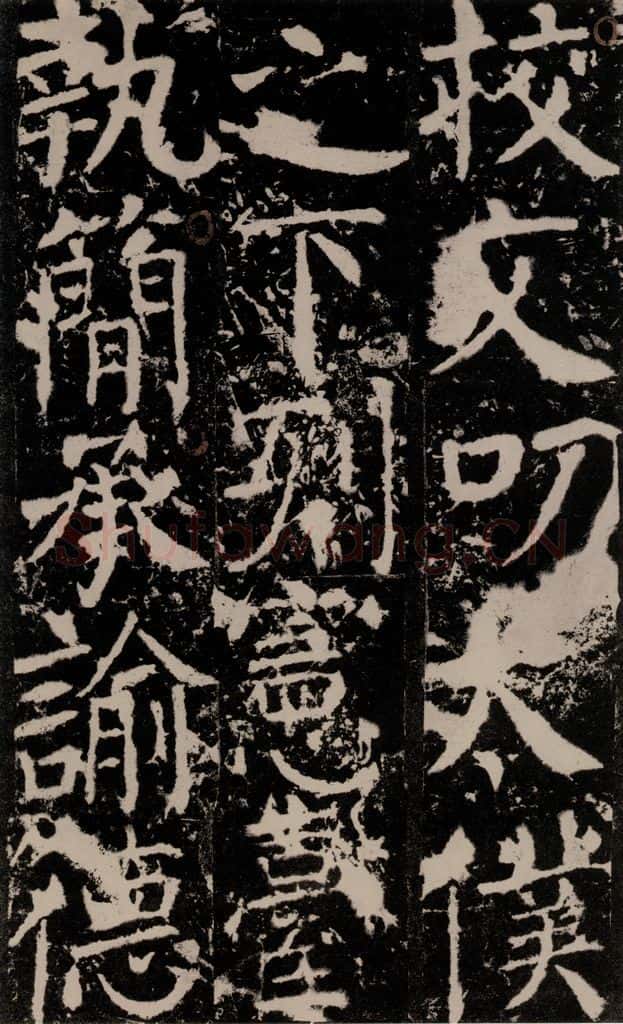 校文叨太僕
之下列憲臺
執簡承諭德
shufawang.CN